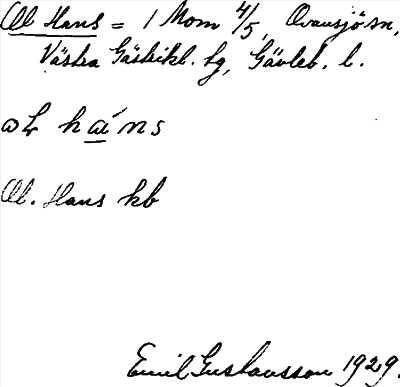 Ol Hans = 1 Mom 4/5, Ovansjö sn,
Västra Gästrikl. hg, Gävleb. l.
ωL ha´ns
Ol. Hans kb
Emil Gustavsson 1929.